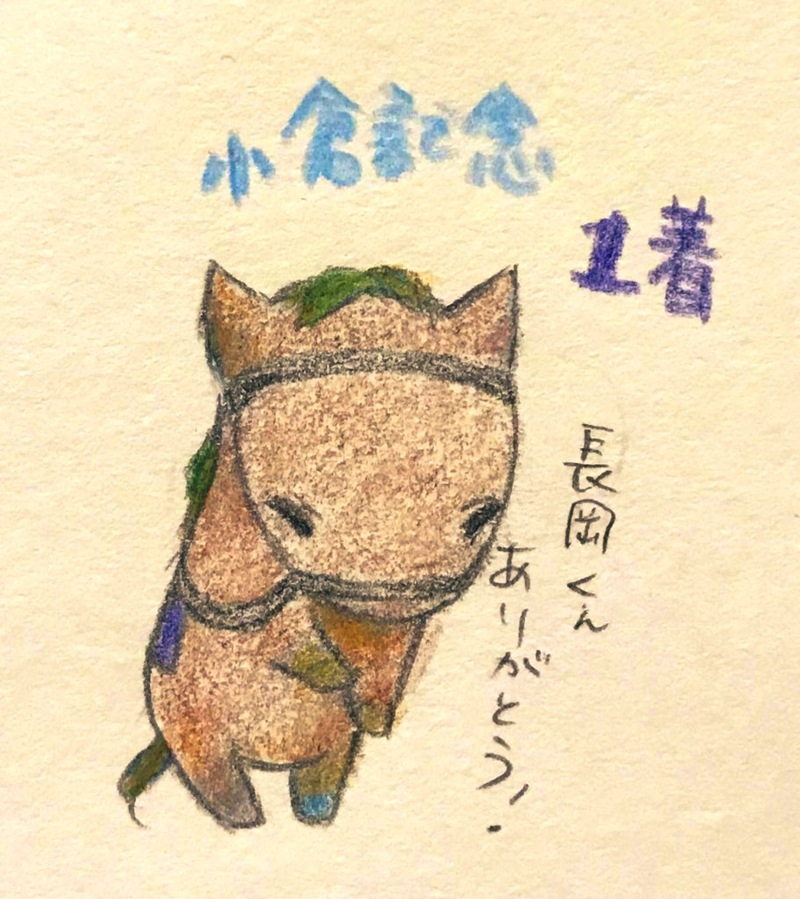 小倉記念
1着
長岡くん
ありがとう!